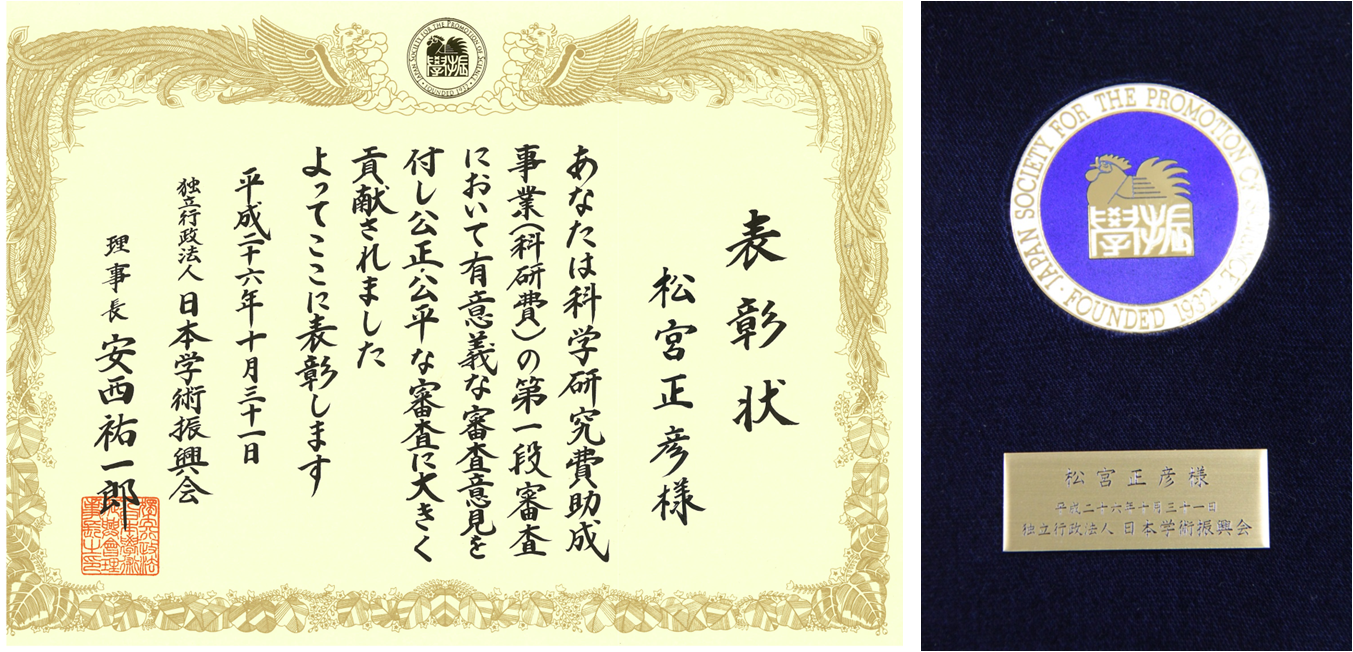 JAPAN SOCIETY FOR THE PROMOTION OF SCIENCE
FOUNDED 1932
學振
表彰状
松宮正彦様
あなたは科学研究費助成
事業（科研費）の第一段審査
において有意義な審査意見を
付し公正・公平な審査に大きく
貢献されました
よってここに表彰します
平成二十六年十月三十一日
独立行政法人 日本学術振興会
理事長 安西祐一郎
JAPAN SOCIETY FOR THE PROMOTION OF SCIENCE
FOUNDED 1932
學振
松宮正彦様
平成二十六年十月三十一日
独立行政法人 日本学術振興会